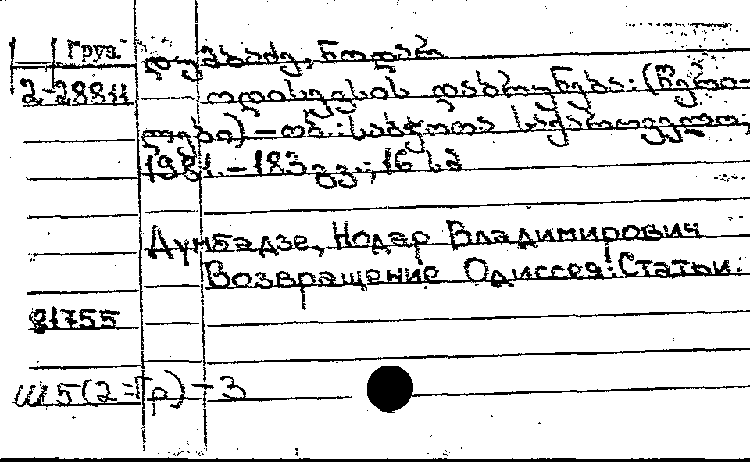 Груз.
2-28811
დუმბაძე, ნოდარ
ოდისევსის დაბრუნება: (წერი-
ლები) – თბ.: საბჭოთა საქართველო,
1981. – 183 გვ.; 16 სმ
Думбадзе, Нодар Владимирович
Возвращение Одиссея: Статьи.
81755
Ш5(2=Гр)-3